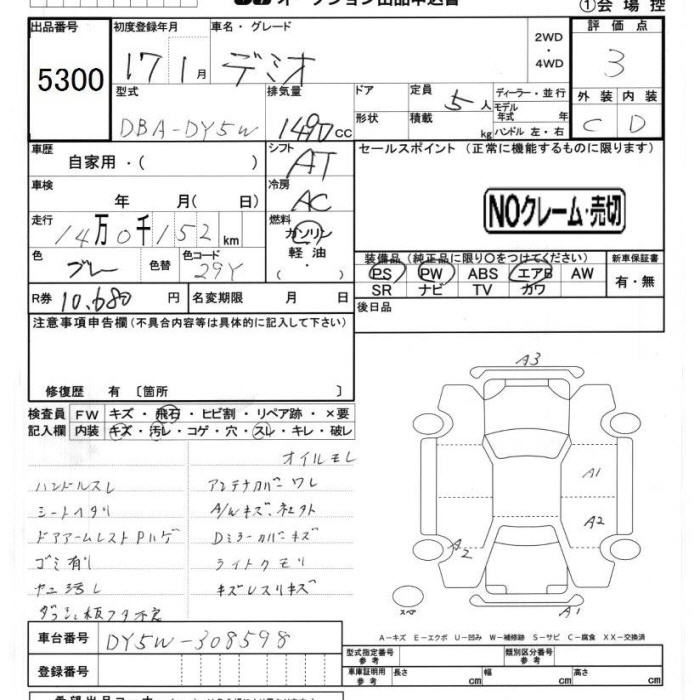 ①会場控
出品番号 初度登録年月 車名・グレード 2WD ・ 4WD 評価点
5300 17 1月 デミオ 3
型式 排気量 ドア 定員 5人 ディーラー・並行 外装 内装
DBA-DY5W 1490 CC 形状 積載 kg モデル年式 年 ハンドル 左・右 C D
車歴 シフト セールスポイント (正常に機能するものに限ります)
自家用・( ) AT
車検 冷房
年 月( 日) AC NOクレーム・売切
走行 燃料
14万0千152km ガソリン
色 色替 色コード 軽油 装備品 (純正品に限り〇をつけてください) 新車保証書
グレー 29Y ( ・ ) PS PW ABS エアB AW 有・無
SR ナビ TV カワ
R券 10,680円 名変期限 月 日 後日品
注意事項申告欄 (不具合内容等は具体的に記入して下さい)
修復歴 有 〔箇所 〕
検査員 FW キズ・飛石・ヒビ割・リペア跡・×要
記入欄 内装 キズ・汚レ・コゲ・穴・スレ・キレ・破レ
オイルモレ
ハンドルスレ アンテナカバーワレ
シートヘタリ
ドアアームレストPハゲ Dミラーカバーキズ
ゴミ有り ライトクモリ
キズレスリキズ
A3
A1
A2
A2
A1
スペア
A-キズ E-エクボ U-凹み W-補修跡 S-サビ C-腐食 XX-交換済
車台番号 DY5W-308598
登録番号
型式指定番号 参考 類別区分番号 参考
車庫証明用 参考 長さ cm 幅 cm 高さ cm